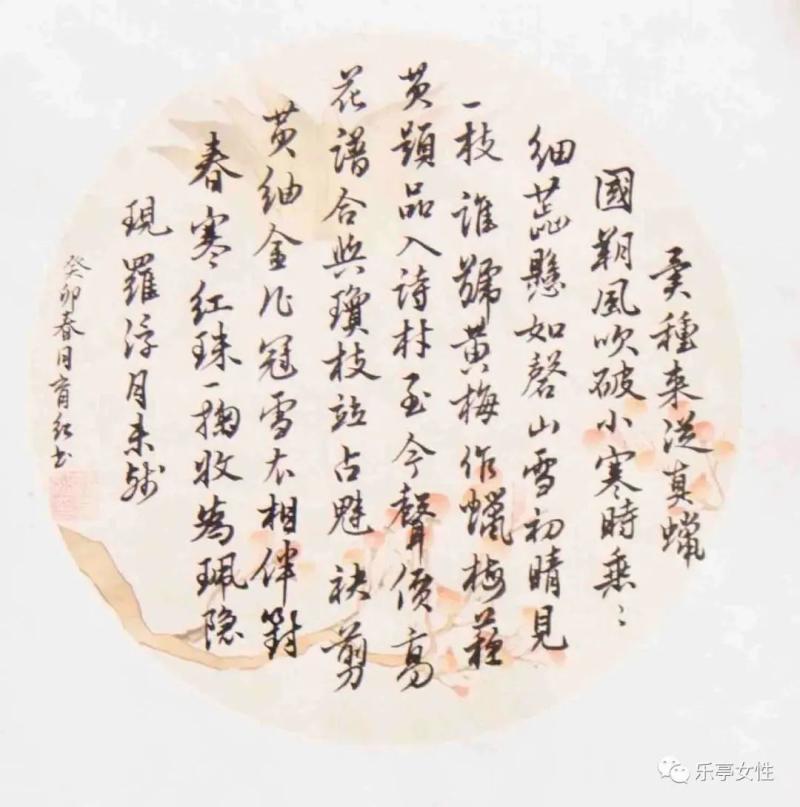 異種来從真蠟
國朔風吹破小寒時垂〻
細蕋懸如磬山雪初晴見
一枝誰號黄梅作蠟梅蘇
黄題品入詩材至今聲價高
花譜合與瓊枝竝占魁袂剪
黄紬金作冠雪衣相伴對
春寒紅珠一掬收為珮隐
現羅浮月未殘
癸卯春月育红书
乐亭女性